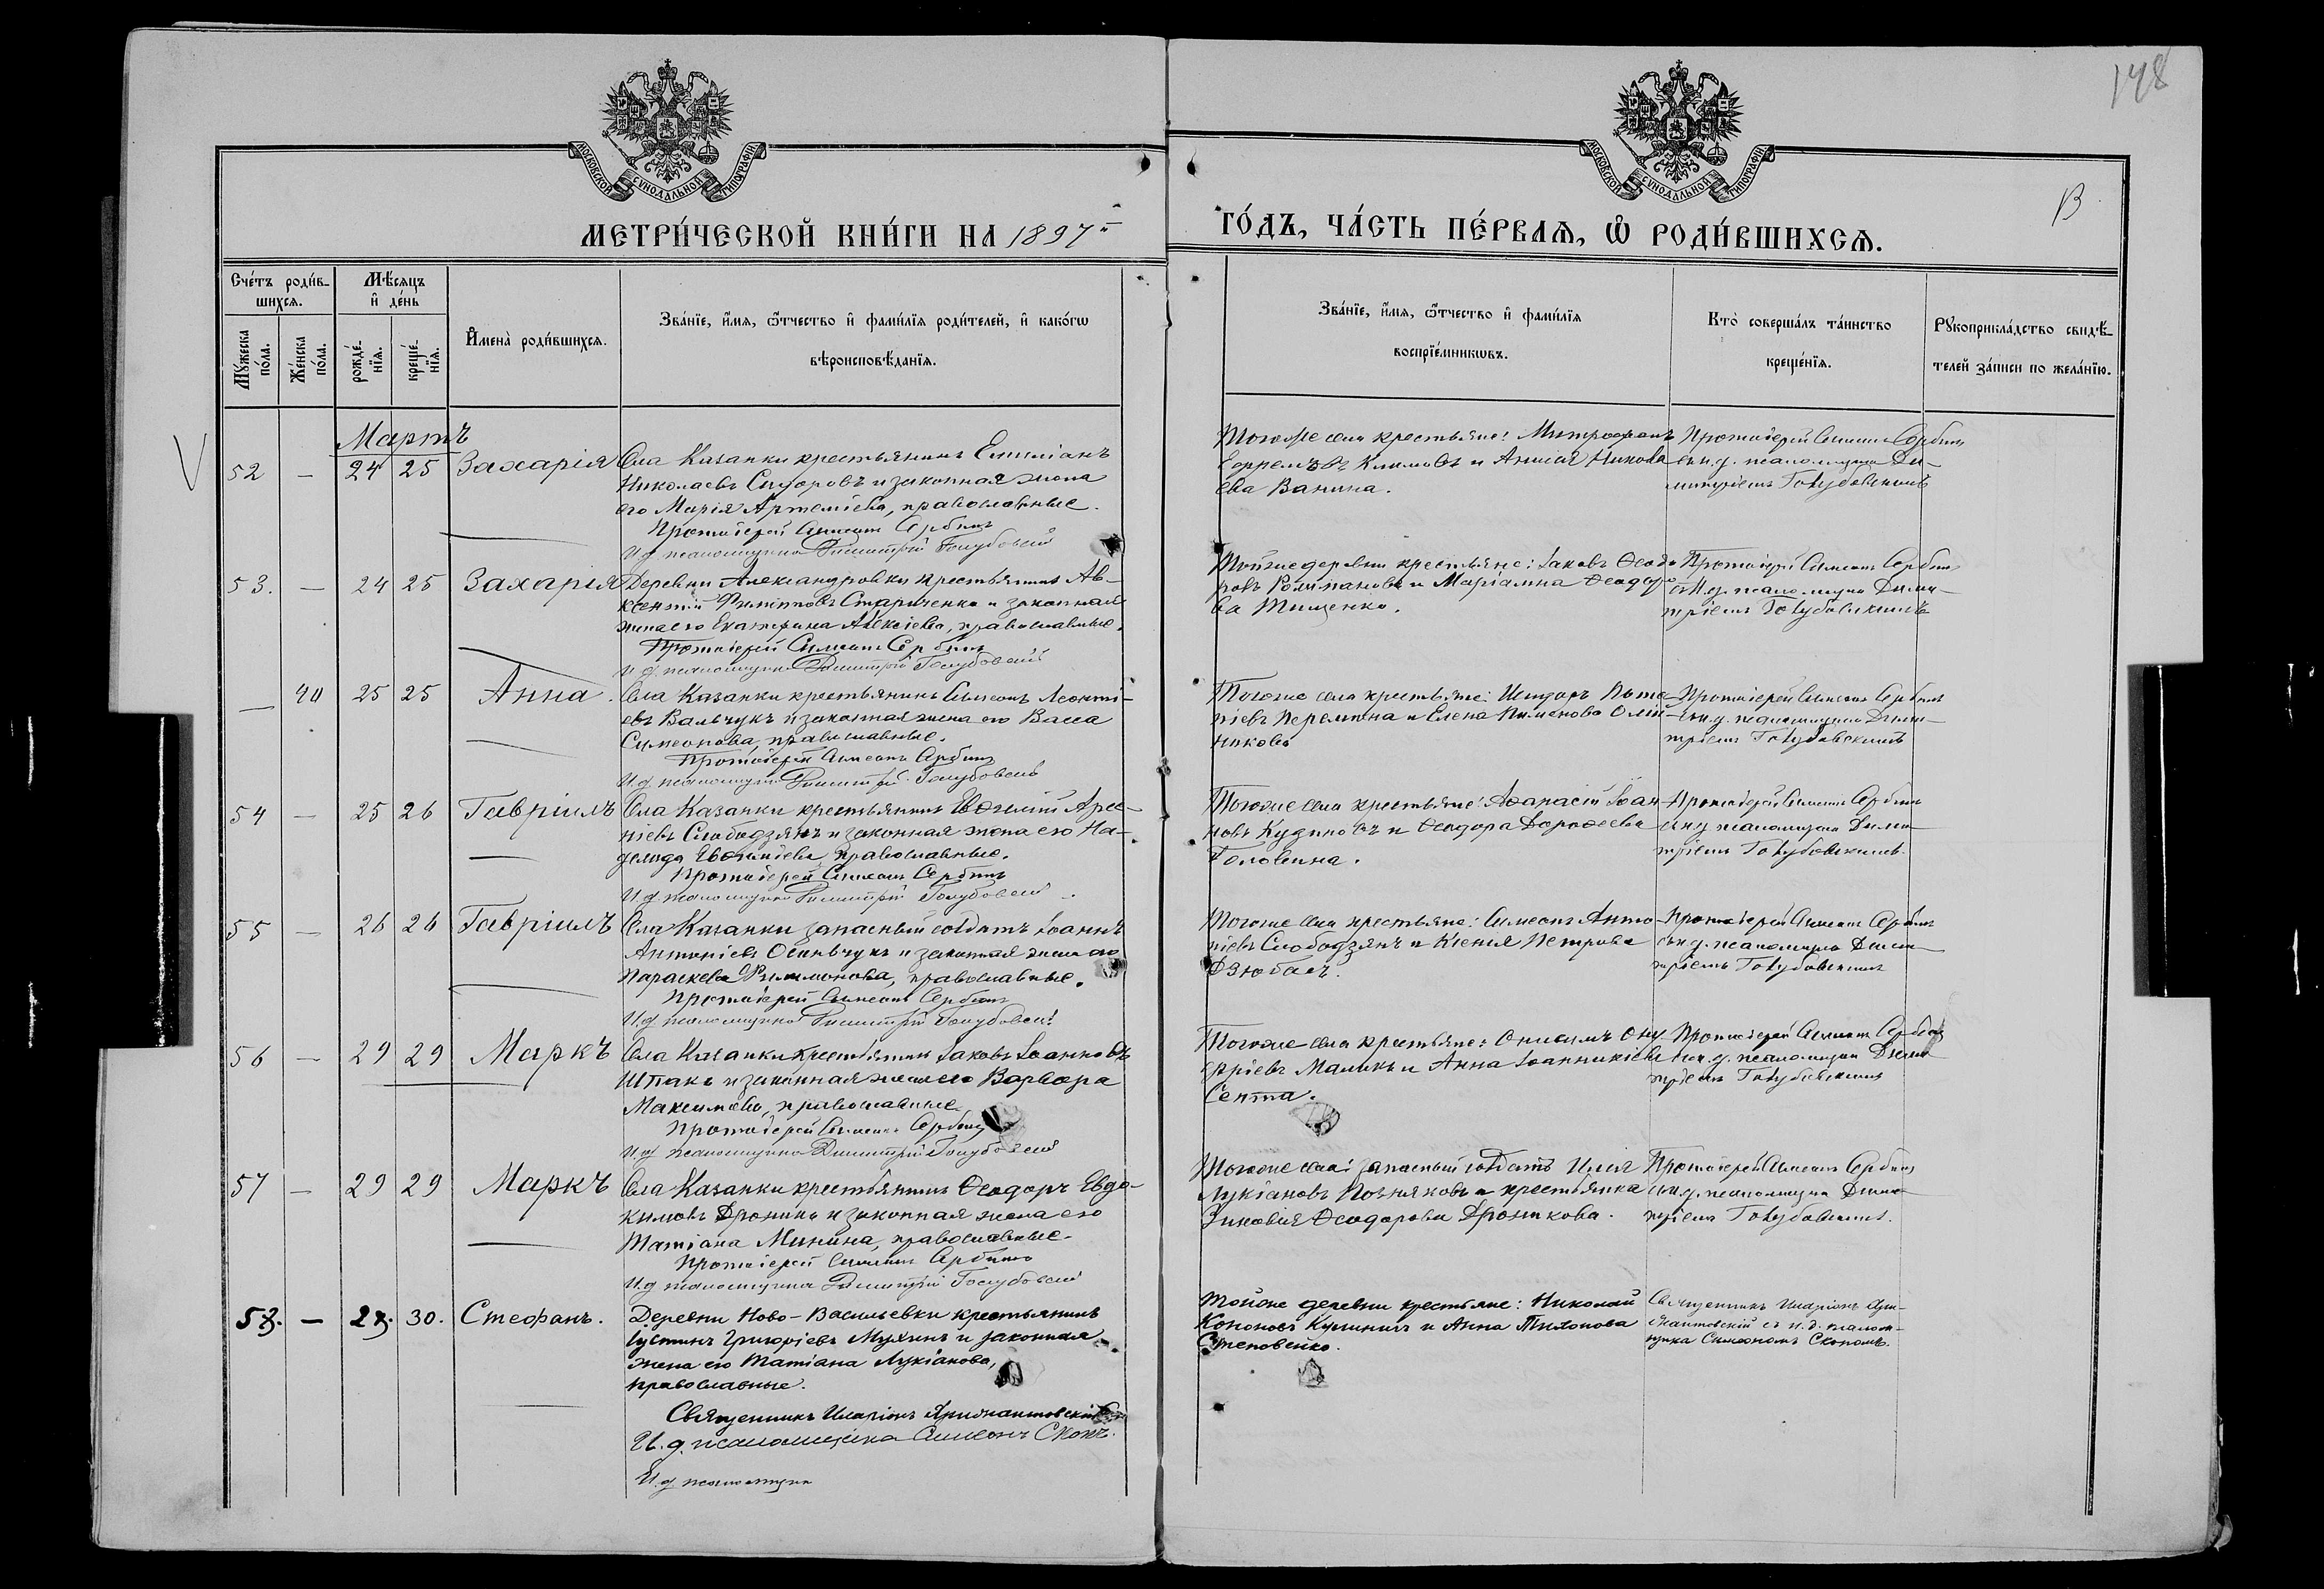 148
В
МОСКОВСКОЙ СѴНОДАЛЬНОЙ ТИПОГРАФІИ
МОСКОВСКОЙ СѴНОДАЛЬНОЙ ТИПОГРАФІИ
МЕТРИ́ЧЕСКОЙ КНИ́ГИ НА 1897 й
ГО́ДЪ, ЧА́СТЬ ПЕ́РВАѦ, Ѽ РОДИ́ВШИХСѦ.
Сче́тъ роди́в-
шихсѧ.
Мѣ́сѧцъ
и҆ де́нь
И҆мена̀ роди́вшихсѧ.
Зва́нїе, и҆́мѧ, ѻ҆́тчество и҆ фами́лїѧ роди́телей, и҆ како́гѡ
вѣроисповѣ́данїѧ.
Мꙋ́жеска
по́ла.
Же́нска
по́ла.
рожде́-
нїѧ.
креще́-
нїѧ.
Зва́нїе, и҆́мѧ, ѻ҆́тчество и҆ фами́лїѧ
воспрїе́мникѡвъ.
Кто̀ соверша́лъ та́инство
креще́нїѧ.
Рꙋкоприкла́дство свидѣ́-
телей за́писи по жела́нїю.
Мартъ
52 — 24 25 Захарія
Села Казанки крестьянинъ Емиліанъ
Николаевъ Сидоровъ и законная жена
его Марія Артеміева, православные.
Протоіерей Симеонъ Сербинъ
И.д. псаломщика Димитрій Голубовскій
Тогоже села крестьяне: Митрофанъ
Климовъ и Анисія
ева Ванина.
Протоіерей Симеонъ Сербинъ
съ и.д. псаломщика Ди-
митріемъ Голубовскимъ
53. — 24 25 Захарія
Деревни Александровки крестьянинъ Ав-
ксентій Филипповъ Стариченко и законная
жена его Екатерина Алексіева, православные.
Протоіерей Симеонъ Сербинъ
И.д. псаломщика Димитрій Голубовскій
Тойже деревни крестьяне: Іаковъ Ѳеодо
ровъ Романовъ и Маріамна Ѳеодоро
ва Тищенко.
Протоіерей Симеонъ Сербинъ
съ и.д. псаломщика Дими-
тріемъ Голубовскимъ
— 40 25 25 Анна.
Села Казанки крестьянинъ Симеонъ Леонті-
евъ Вальчукъ и законная жена его Васса
Симеонова, православные.
Протоіерей Симеонъ Сербинъ
И.д. псаломщика Димитрій Голубовскій
Тогоже села крестьяне: Исидоръ Пота
піевъ Перепина и Елена Пименова Олій-
никова
Протоіерей Симеонъ Сербинъ
съ и.д. псаломщика Дими-
тріемъ Голубовскимъ
54 — 25 26 Гавріилъ
Села Казанки крестьянинъ Евѳимій Арсе-
ніевъ Слободзянъ и законная жена его На-
дежда Евѳиміева, православные.
Протоіерей Симеонъ Сербинъ
И.д. псаломщика Димитрій Голубовскій
Тогоже села крестьяне: Аѳанасій Іоан-
новъ Кудиновъ и Ѳеодора Дороѳеева
Головина.
Протоіерей Симеонъ Сербинъ
съ и.д. псаломщика Дими-
тріемъ Голубовскимъ.
55 — 26 26 Гавріилъ
Села Казанки запасный солдатъ Іоаннъ
Антоніевъ Осипчукъ и законная жена его
Параскева Филимонова, православные.
Протоіерей Симеонъ Сербинъ
И.д. псаломщика Димитрій Голубовскій
Тогоже села крестьяне: Симеонъ Анто-
ніевъ Слободзянъ и Ксенія Петрова
Дзюбасъ.
Протоіерей Симеонъ Сербинъ
съ и.д. псаломщика Дими-
тріемъ Голубовскимъ
56 — 29 29 Маркъ
Села Казанки крестьянинъ Іаковъ Іоанновъ
Шпакъ и законная жена его Варвара
Максимова, православные.
Протоіерей Симеонъ Сербинъ
И.д. псаломщика Димитрій Голубовскій
Тогоже села крестьяне: Онисимъ Ону
фріевъ Маликъ и Анна Іоанникіева
Сеппа.
Протоіерей Симеонъ Сербинъ
съ и.д. псаломщика Дими-
тріемъ Голубовскимъ
57 — 29 29 Маркъ
Села Казанки крестьянинъ Ѳеодоръ Евдо-
кимовъ Дронинъ и законная жена его
Татіана Минина, православные.
Протоіерей Симеонъ Сербинъ
И.д. псаломщика Димитрій Голубовскій
Тогоже села: запасный солдатъ Илія
Лукіановъ Позняковъ и крестьянка
Зиновія Ѳеодорова Дронкова.
Протоіерей Симеонъ Сербинъ
съ и.д. псаломщика Дими-
тріемъ Голубовскимъ.
58. — 28. 30. Стефанъ.
Деревни Ново-Васильевки крестьянинъ
Іустинъ Григоріевъ Мухинъ и законная
жена его Татіана Лукіанова,
православные.
Священникъ Иларіонъ
И.д. псаломщика Симеонъ Скопъ.
И.д. псаломщика
Тойже деревни крестьяне: Николай
Кононовъ Куринный и Анна Тихонова
Степовенко.
Священникъ Иларіонъ
съ и.д. псалом-
щика Симеономъ Скопомъ.